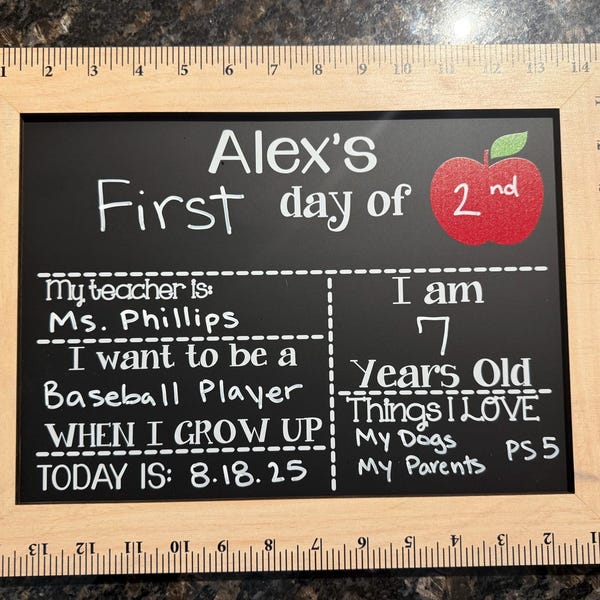 1 2 3 4 5 6 7 8 9 10 11 12 13 14
Alex's
First day of 2nd
My teacher is:
Ms. Phillips
I want to be a
Baseball Player
WHEN I GROW UP
TODAY IS: 8.18.25
I am
7
Years Old
Things I LOVE
My Dogs
My Parents PS5
13 12 11 10 9 8 7 6 5 4 3 2 1